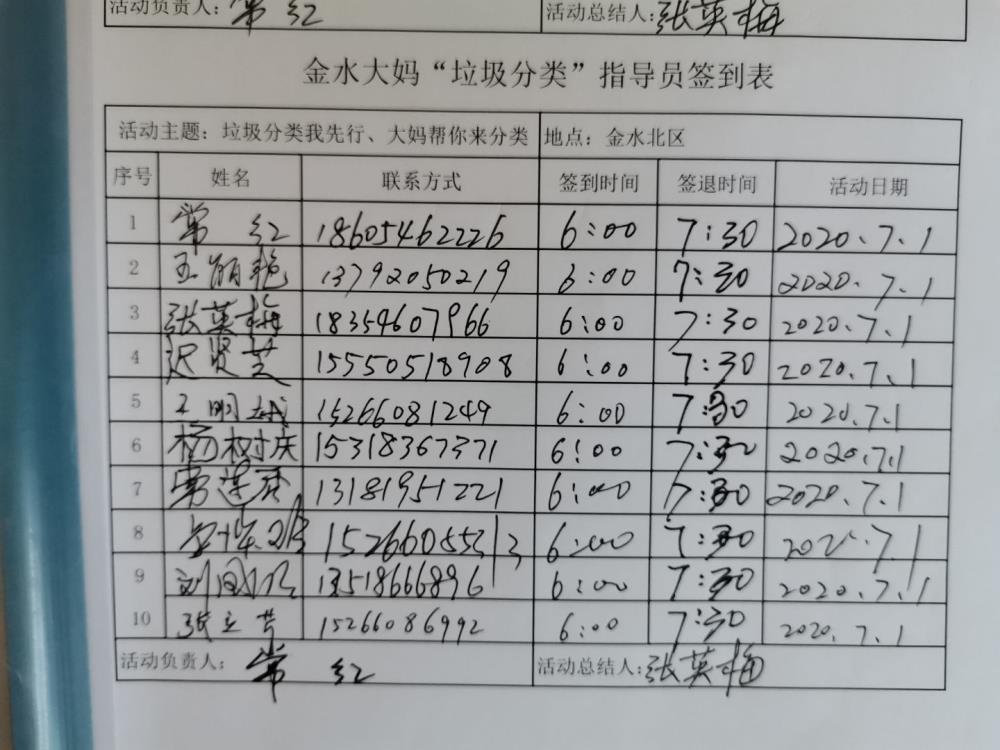 活动负责人：常 红 活动总结人：张英梅
金水大妈“垃圾分类”指导员签到表
活动主题：垃圾分类我先行、大妈帮你来分类 地点：金水北区
序号 姓名 联系方式 签到时间 签退时间 活动日期
1 常 红 18605462226 6:00 7:30 2020.7.1
2 王丽艳 13792050219 6:00 7:30 2020.7.1
3 张英梅 18354607966 6:00 7:30 2020.7.1
4 迟贤芝 15550518908 6:00 7:30 2020.7.1
5 王明 15266081249 6:00 7:30 2020.7.1
6 杨树庆 15318367371 6:00 7:30 2020.7.1
7 常莲香 13181951221 6:00 7:30 2020.7.1
8 15266055313 6:00 7:30 2020.7.1
9 刘 13518666896 6:00 7:30 2020.7.1
10 张立芳 15266086992 6:00 7:30 2020.7.1
活动负责人：常 红 活动总结人：张英梅